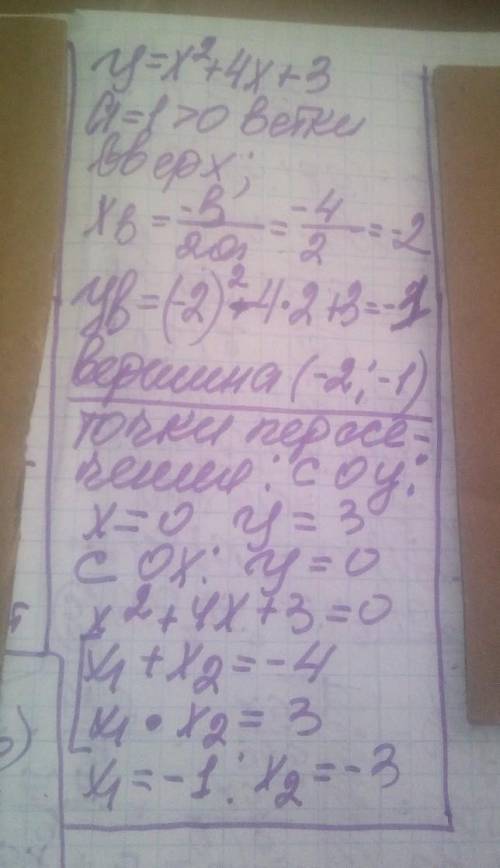 y=x²+4x+3
a=1>0 ветки
вверх;
xв = -в/2a = -4/2 = -2
yв = (-2)²-4·2+3=-1
вершина (-2;-1)
точки пересе-
чения: с оу:
x=0 y=3
с ох: y=0
x²+4x+3=0
x₁+x₂=-4
x₁·x₂=3
x₁=-1; x₂=-3